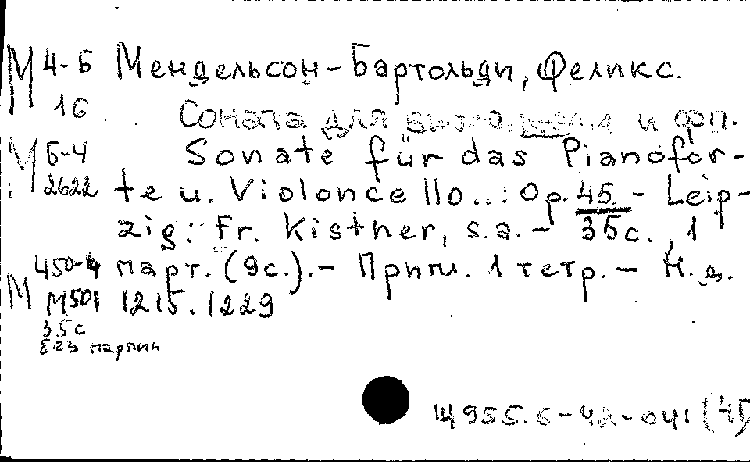 М 4-Б Мендельсон-Бартольди, Феликс.
16 Соната для виолончели и фп.
М Б-4 Sonate für das Pianofor-
2622 te u. Violoncello..: Op. 45. - Leip-
zig: Fr. Kistner, s.a. - 35с., 1
М 450-4 парт. (9с.). - Прил. 1 тетр. - Н.д.
М501 1215.1229
35с
без партии
Щ 955.6-42-041 (45)